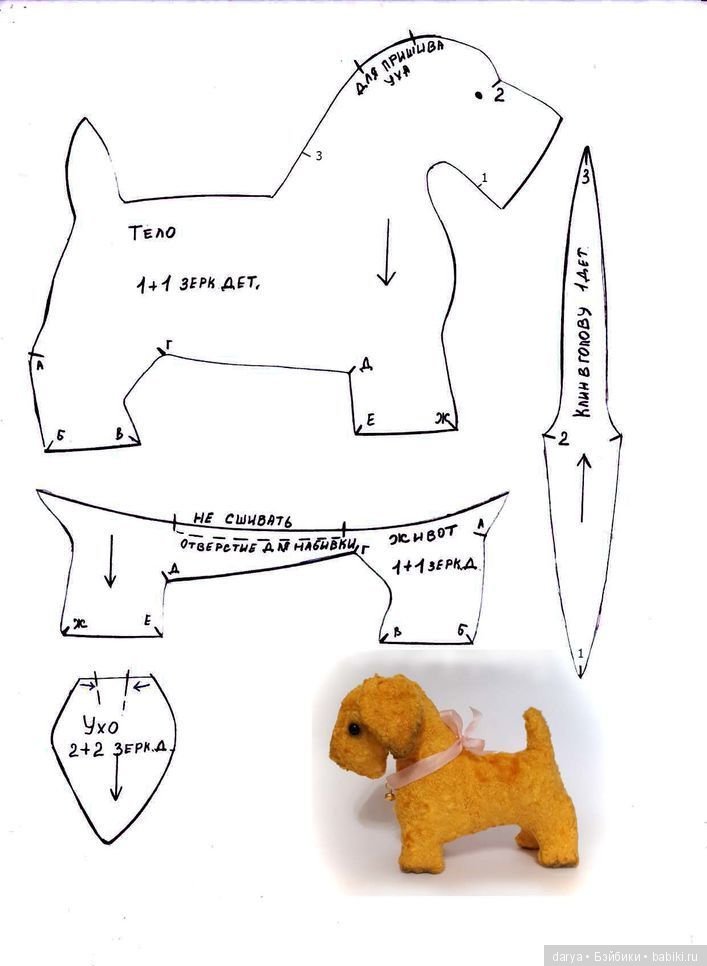 ДЛЯ ПРИШИВА
УХА
2
3
1
3
ТЕЛО
1+1 ЗЕРК ДЕТ.
КЛИН В ГОЛОВУ 1 ДЕТ.
А
Г
Д
Б
В
Е
Ж
2
НЕ СШИВАТЬ
ОТВЕРСТИЕ ДЛЯ НАБИВКИ
Г
ЖИВОТ
А
1+1 ЗЕРК.Д.
Д
Ж
Е
В
Б
1
УХО
2+2 ЗЕРК.Д.
darya • Бэйбики • babiki.ru